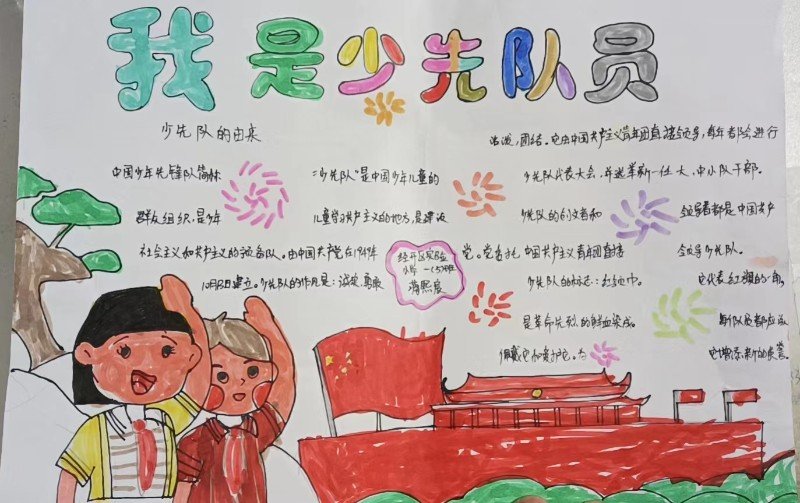 我是少先队员
少先队的由来
中国少年先锋队简称
“少先队”是中国少年儿童的
群众组织,是少年
儿童学习共产主义的地方,是建设
社会主义和共产主义的预备队。由中国共产党在1949年
10月13日建立。少先队的作风是:诚实、勇敢
活泼,团结。它由中国共产主义青年团直接领导,每年都会进行
少先队代表大会,并选举新一任大、中小队干部。
少先队的创立者和
领导者都是中国共产
党。党委托中国共产主义青年团直接
领导少先队。
少先队的标志:红领巾。
它代表红旗的一角,
是革命先烈的鲜血染成。
每个队员都应该
佩戴它和爱护它。为
它增添新的荣誉。
经开区实验
小学一(5)班
蒋熙晨